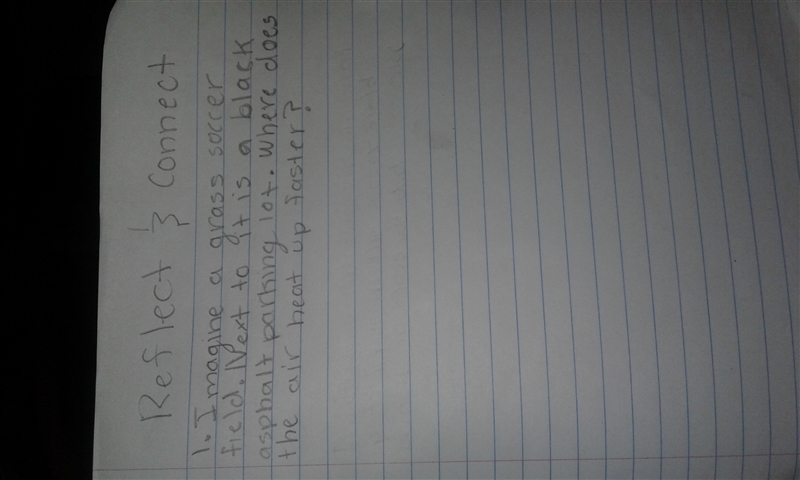 Reflect & Connect
1. Imagine a grass soccer
field. Next to it is a black
asphalt parking lot. Where does
the air heat up faster?